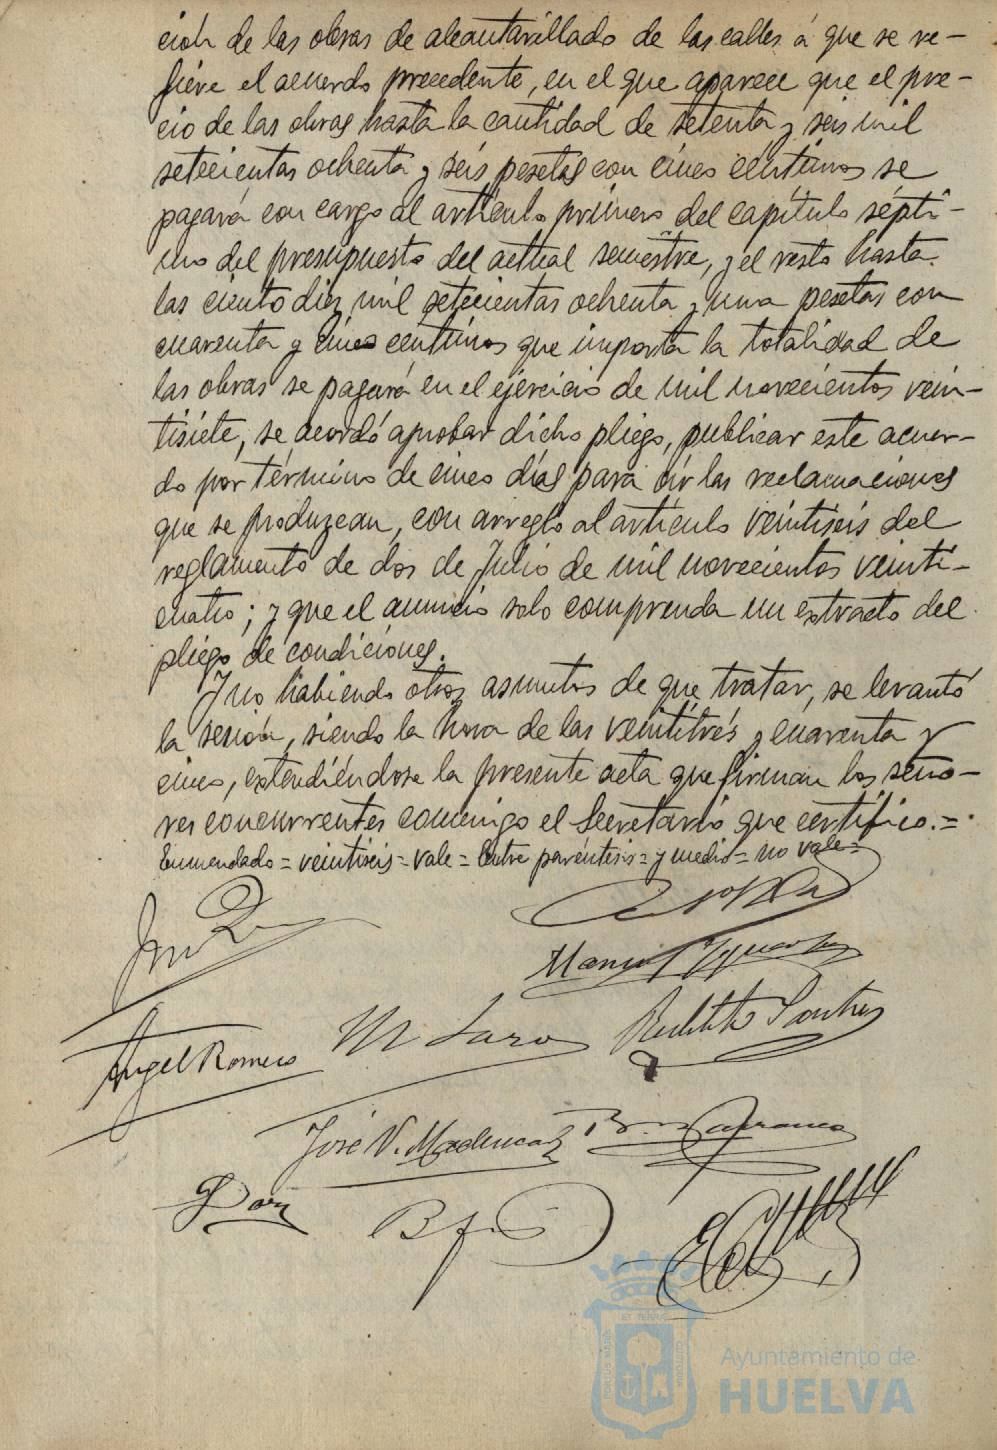 ción de las obras de alcantarillado de las calles á que se re-
fiere el acuerdo precedente, en el que aparece que el pre-
cio de las obras hasta la cantidad de setenta y seis mil
setecientas ochenta y seis pesetas con cinco céntimos se
pagará con cargo al artículo primero del capítulo sépti-
mo del presupuesto del actual semestre, y el resto hasta
las ciento diez mil setecientas ochenta y una pesetas con
cuarenta y cinco centimos que importa la totalidad de
las obras se pagará en el ejercicio de mil novecientos vein-
tisiete, se acordó aprobar dicho pliego, publicar este acuer-
do por término de cinco días para oir las reclamaciones
que se produzcan, con arreglo al artículo veintiseis del
reglamento de dos de Julio de mil novecientos veinti-
cuatro; y que el anuncio solo comprenda un extracto del
pliego de condiciones.
Y no habiendo otros asuntos de que tratar, se levantó
la sesión, siendo la hora de las veintitrés y cuarenta y
cinco, extendiéndose la presente acta que firman los seño-
res concurrentes conmigo el Secretario que certifico.=
Enmendado = veintiseis = vale = Entre paréntesis = y medio = no vale =
Angel Romero
M Lazo
José V. Maduca
Ayuntamiento de
HUELVA